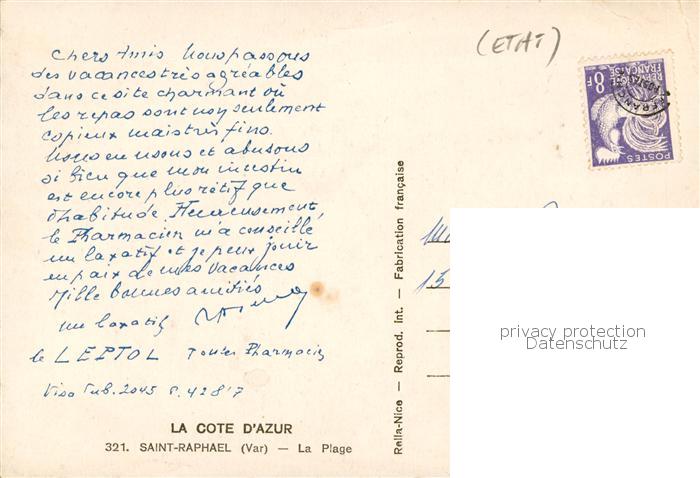 (ETAT)
Chers Amis Nous passons
des vacances très agréables
dans ce site charmant où
les repas sont non seulement
copieux mais très fins.
Nous en usons et abusons
si bien que mon intestin
est encore plus rétif que
d'habitude. Heureusement,
le Pharmacien m'a conseillé
un laxatif et je peux jouir
en paix de mes vacances
Mille bonnes amitiés
un laxatif
le LEPTOL Toutes Pharmacies
Visa Pub. 2045 P. 4287
LA COTE D'AZUR
321. SAINT-RAPHAEL (Var) — La Plage
Rella-Nice — Reprod. Int. — Fabrication française
POSTES
REPUBLIQUE
FRANÇAISE
8F
15
privacy protection
Datenschutz